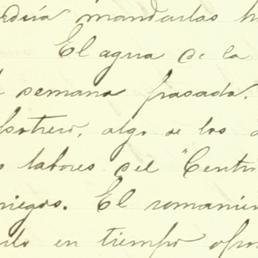 mandarlas h
El agua de la
semana pasada.
potrero, algo de los
labores del "Centr
niegos. El romanien
en tiempo opor